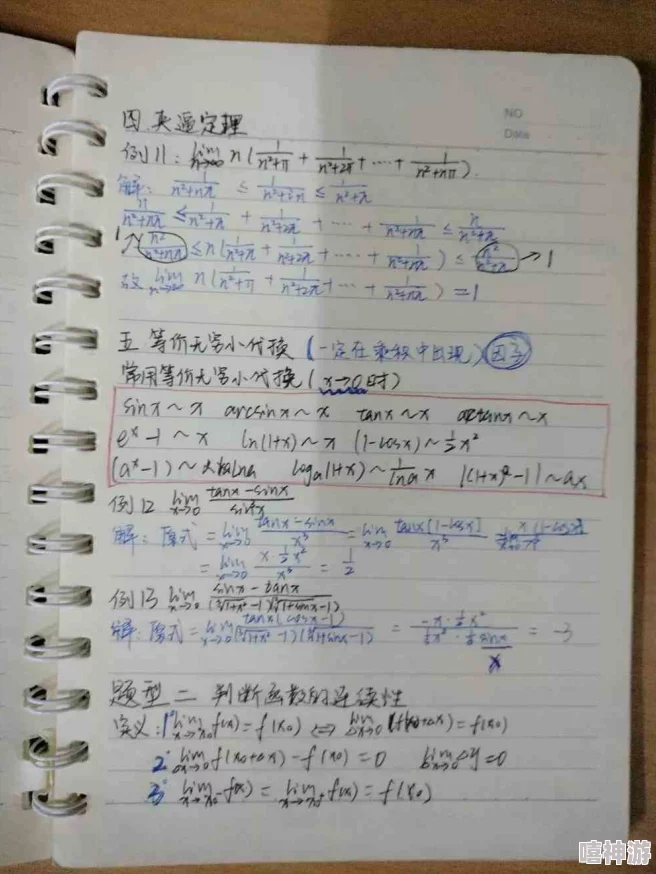 NO
Date
四.夹逼定理
例11: lim n→∞ n(1/(n²+π) + 1/(n²+2π) + ⋯ + 1/(n²+nπ)).
解: 1/(n²+nπ) ≤ 1/(n²+iπ) ≤ 1/(n²+π)
n/(n²+nπ) ≤ 1/(n²+π) + 1/(n²+2π) + ⋯ + 1/(n²+nπ) ≤ n/(n²+π)
1↗ n²/(n²+nπ) ≤ n(1/(n²+π) + 1/(n²+2π) + ⋯ + 1/(n²+nπ)) ≤ n²/(n²+π) → 1
故 lim n→∞ n(1/(n²+π) + 1/(n²+2π) + ⋯ + 1/(n²+nπ)) = 1
五.等价无穷小代换(一定在乘积中出现)因子
常用等价无穷小代换(x→0时)
sinx~x arcsinx~x tanx~x arctanx~x
eˣ-1~x ln(1+x)~x (1-cosx)~½x²
(aˣ-1)~xlna logₐ(1+x)~1/lna x [(1+x)ᵃ-1]~ax
例12 lim x→0 (tanx-sinx)/sin³x
解: 原式 = lim x→0 (tanx-sinx)/x³ = lim x→0 tanx(1-cosx)/x³
= lim x→0 (x·½x²)/x³ = 1/2
例13 lim x→0 (sinx-tanx)/((∛(1+x²)-1)(√(1+sinx)-1))
解: 原式 = lim x→0 tanx(cosx-1)/((∛(1+x²)-1)(√(1+sinx)-1)) = (-x·½x²)/(⅓x²·½sinx) = -3
x
题型二 判断函数的连续性
定义: 1° lim x→x₀ f(x) = f(x₀) ⇔ lim Δx→0 f(x₀+Δx) = f(x₀)
2° lim Δx→0 f(x₀+Δx) - f(x₀) = 0 lim Δx→0 Δy = 0
3° lim x→x₀⁻ f(x) = lim x→x₀⁺ f(x) = f(x₀)
嘻神游